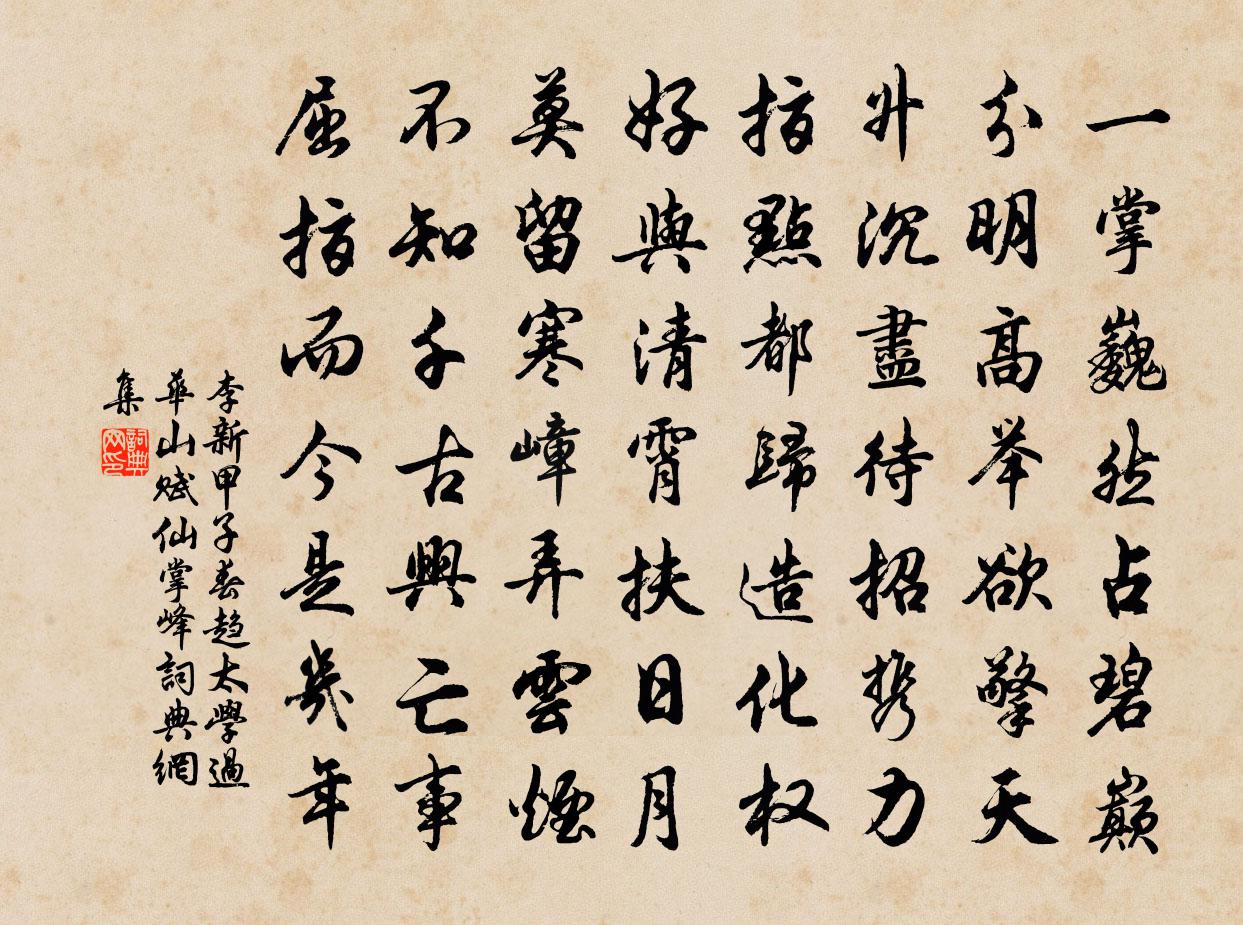 一掌巍然占碧巔
分明高举欲擎天
升沉盡待招携力
指點都歸造化权
好與清霄扶日月
莫留寒嶂弄雲煙
不知千古興亡事
屈指而今是幾年
李新甲子春趋太學過
華山賦仙掌峰詞典網
集
詞典网印